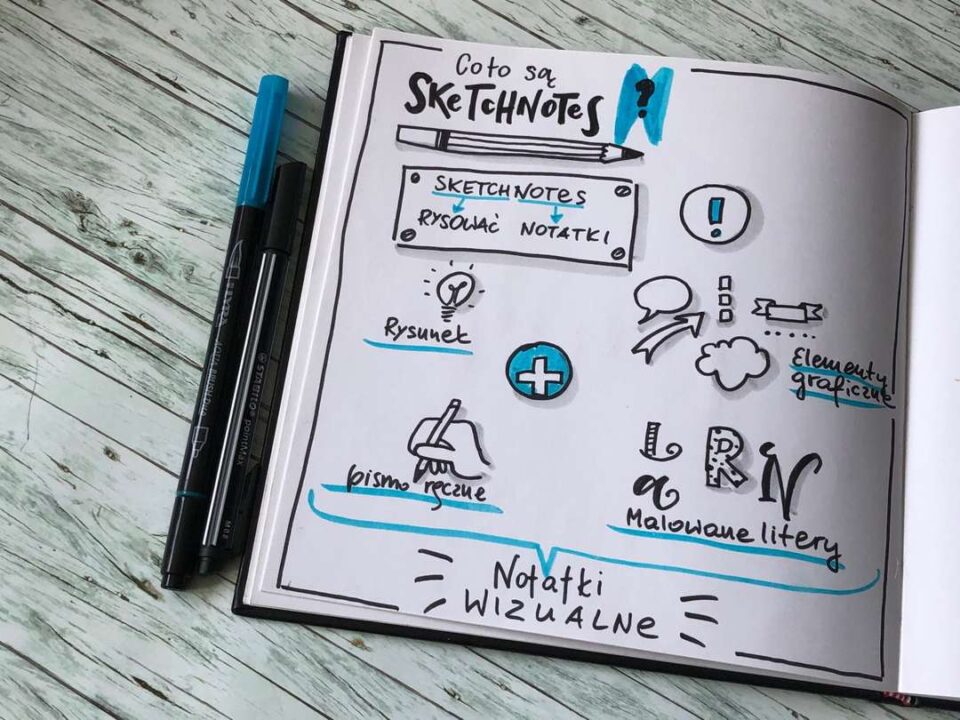 Co to są
SKETCHNOTES ?
SKETCHNOTES
RYSOWAĆ NOTATKI
!
Rysunek
Elementy
graficzne
pismo ręczne
L R N
a
Malowane litery
Notatki
WIZUALNE
STABILO pointMax